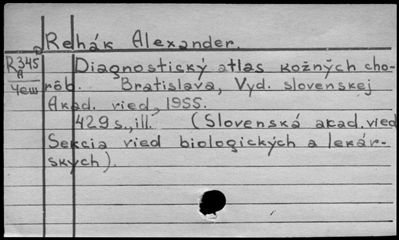 Rehák Alexander.
R345 Diagnostický atlas kožných cho-
A
чеш rôb. Bratislava, Vyd. slovenskej
Akad. vied, 1955.
429 s., ill. (Slovenská akad. vied
Sekcia vied biologických a lekár-
skych).